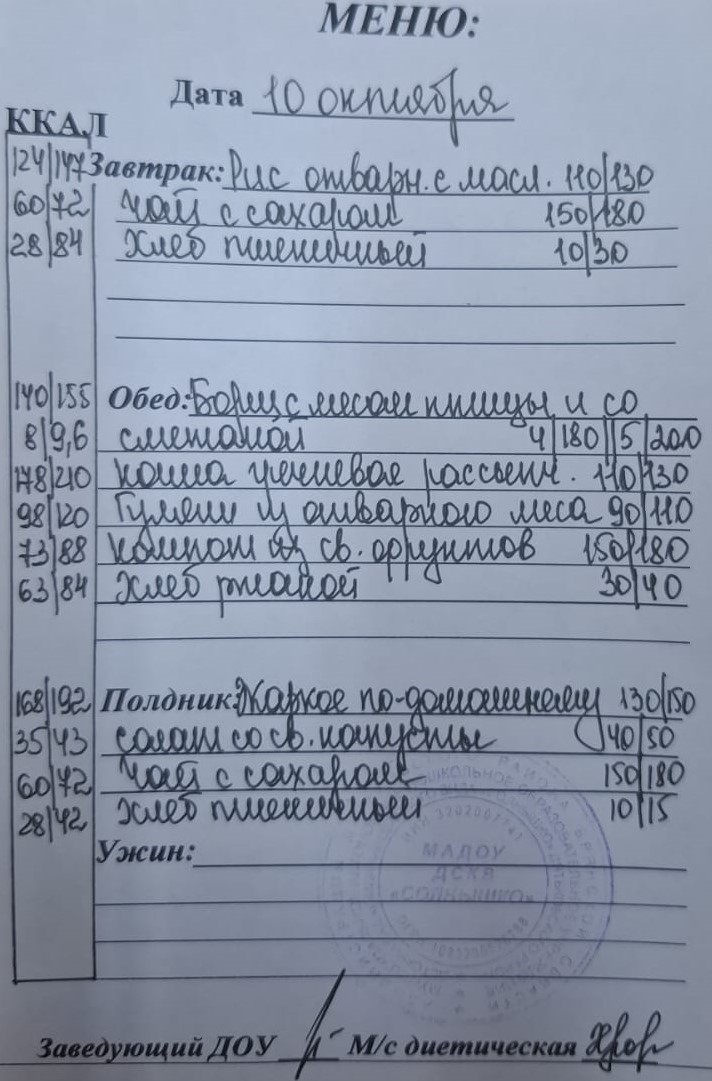 МЕНЮ:
Дата 10 октября
ККАЛ
124|147 Завтрак: Рис отварн. с масл. 110/130
60|72 Чай с сахаром 150/180
28|84 Хлеб пшеничный 10/30
140|155 Обед: Борщ с мясом птицы и со
8|9,6 сметаной 4|180||5|200
178|210 каша гречневая рассыпч. 110/130
98|120 Гуляш из отварного мяса 90/110
73|88 компот из св. фруктов 150/180
63|84 Хлеб ржаной 30/40
168|192 Полдник: Жаркое по-домашнему 130/150
35|43 салат со св. капусты 40|50
60|72 Чай с сахаром 150|180
28|42 Хлеб пшеничный 10|15
Ужин:
МАДОУ
ДСКВ
«СОЛНЫШКО»
Заведующий ДОУ М/с диетическая